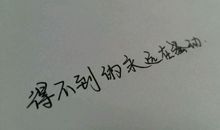 得不到的永远在骚动.